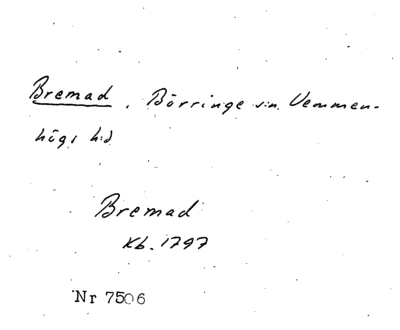 Bremad, Börringe sn. Vemmen-
högs hd
Bremad
Kb. 1797
Nr 7506